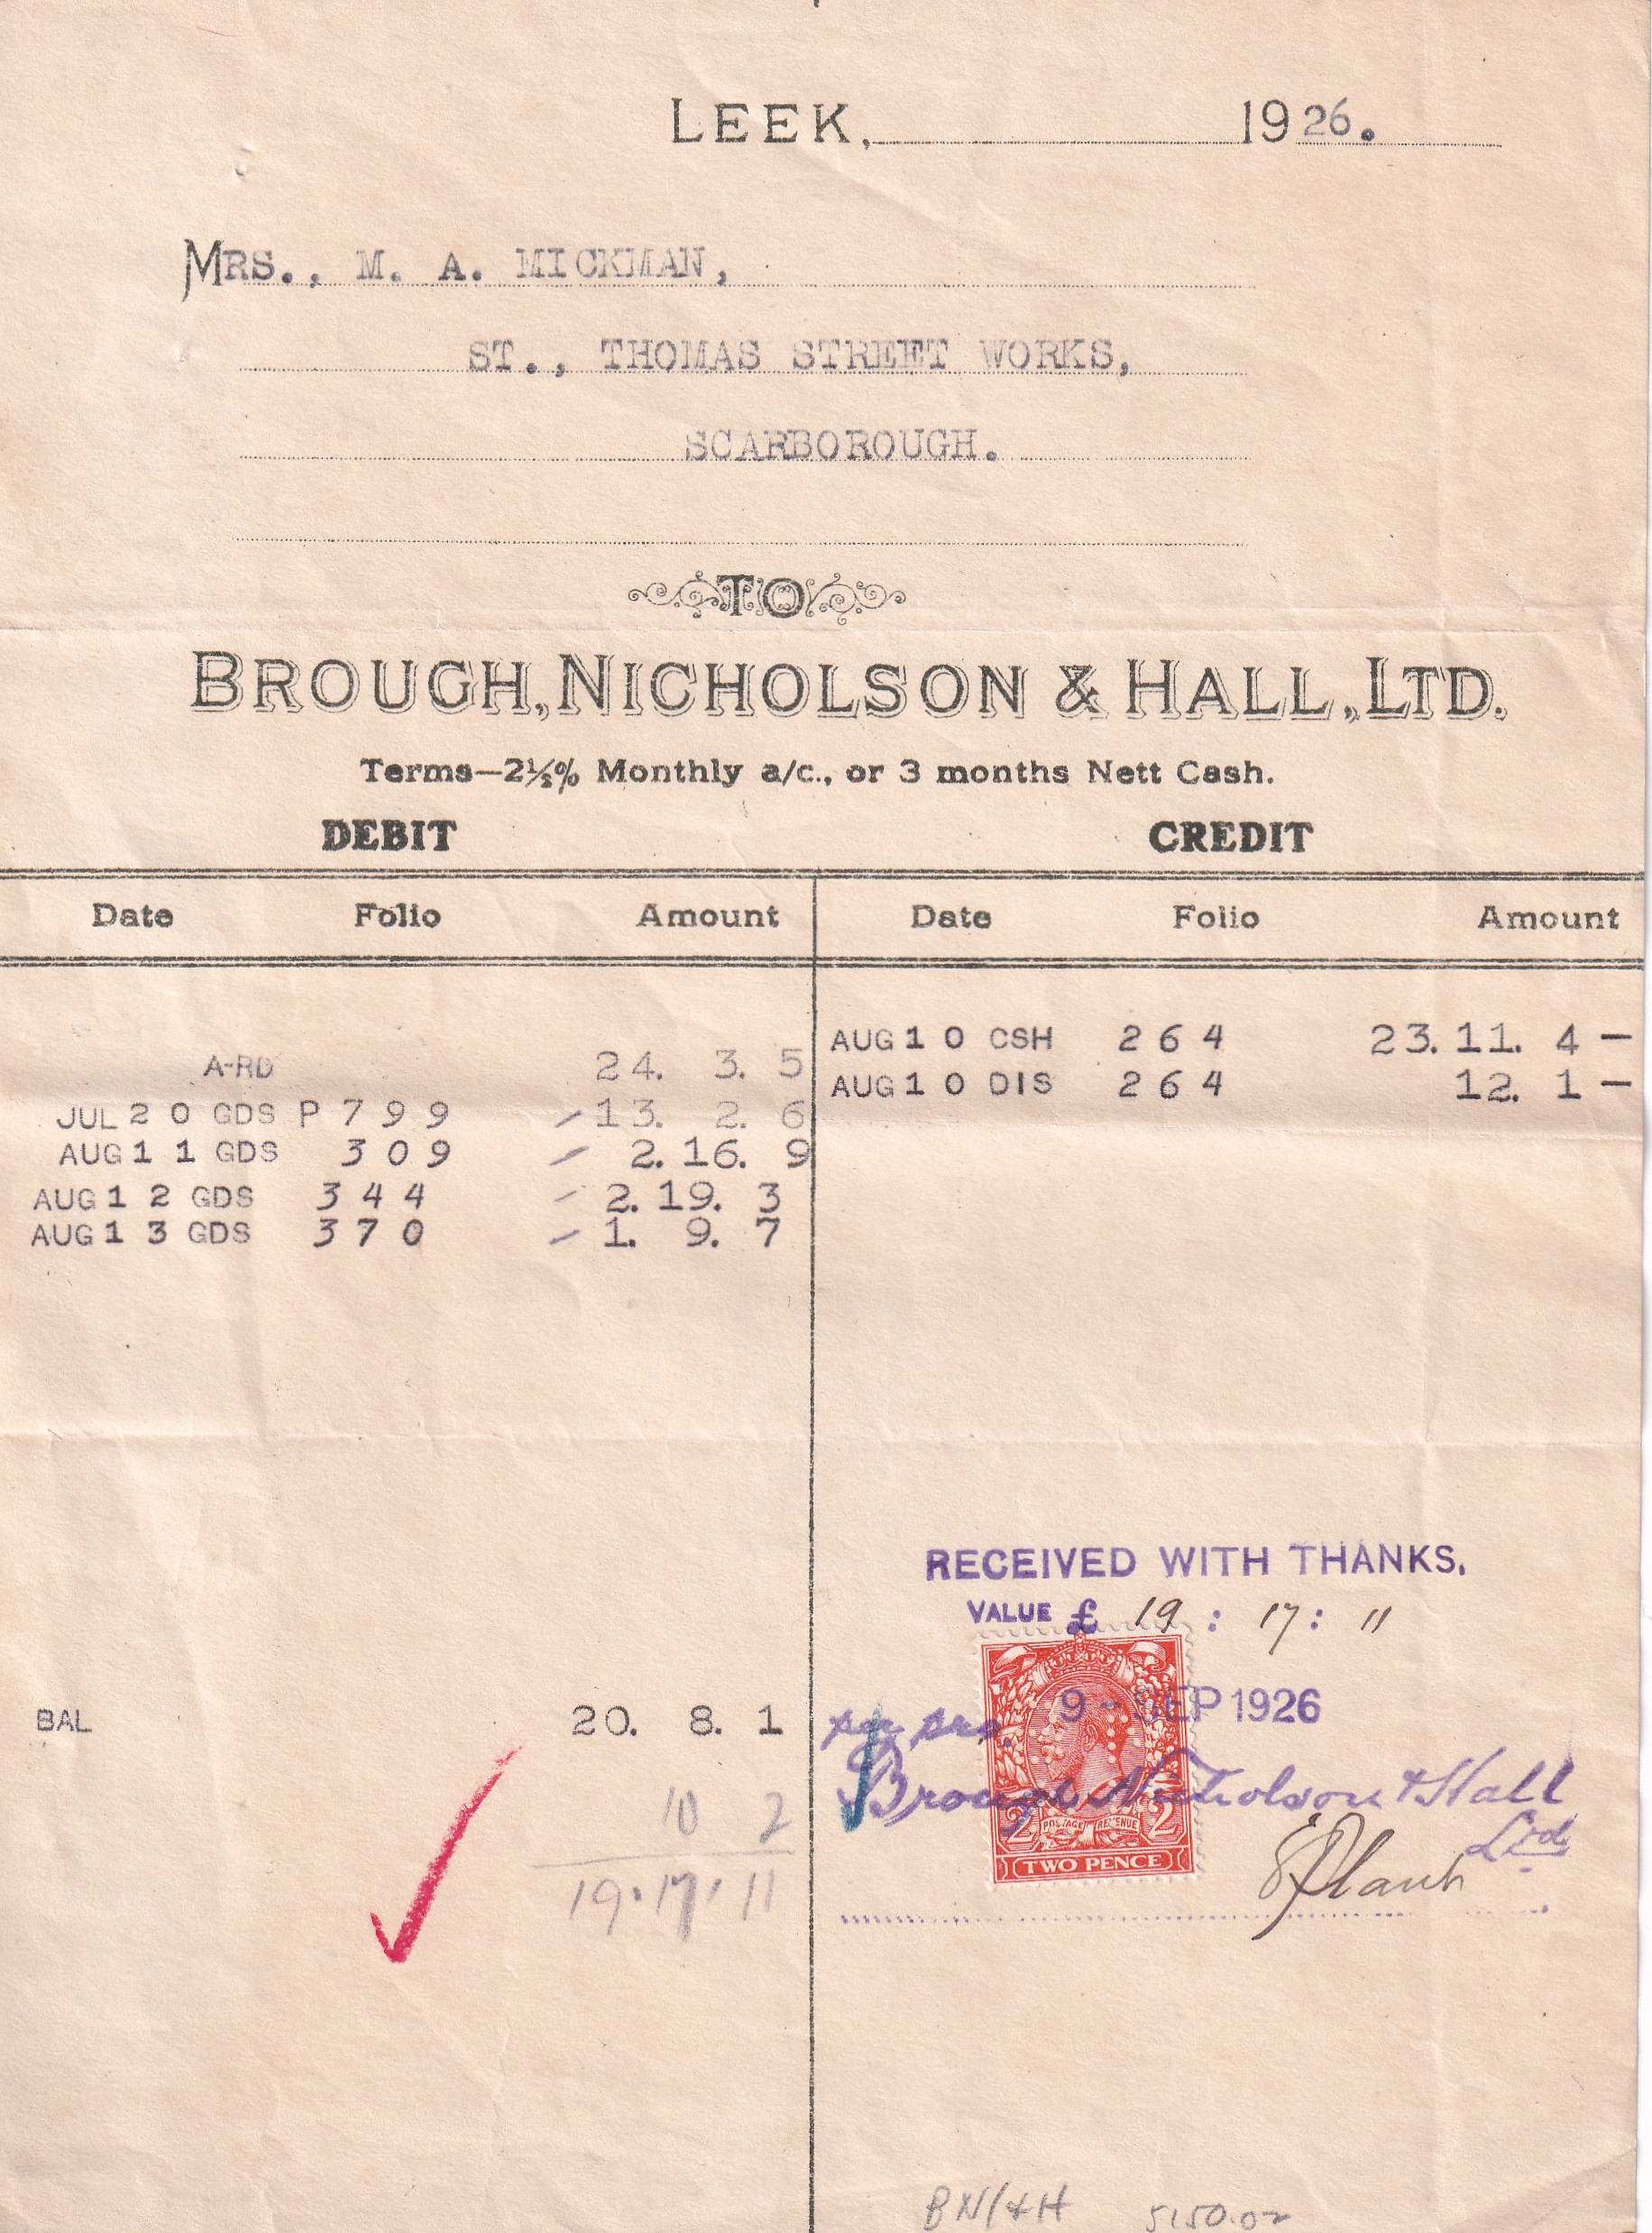 LEEK, 1926.
MRS., M. A. MICKMAN,
ST., THOMAS STREET WORKS,
SCARBOROUGH.
TO
BROUGH, NICHOLSON & HALL, LTD.
Terms—2½% Monthly a/c., or 3 months Nett Cash.
DEBIT CREDIT
Date Folio Amount Date Folio Amount
AUG 10 CSH 264 23. 11. 4 —
A-RD 24. 3. 5
AUG 10 DIS 264 12. 1 —
JUL 20 GDS P 799 13. 2. 6
AUG 11 GDS 309 2. 16. 9
AUG 12 GDS 344 2. 19. 3
AUG 13 GDS 370 1. 9. 7
RECEIVED WITH THANKS.
VALUE £ 19 : 17 : 11
BAL 20. 8. 1
9 - SEP 1926
per pro.
Brough Nicholson & Hall
Ltd.
10 2
19. 17. 11
2 POSTAGE REVENUE 2
TWO PENCE
BN/&H 5150.02